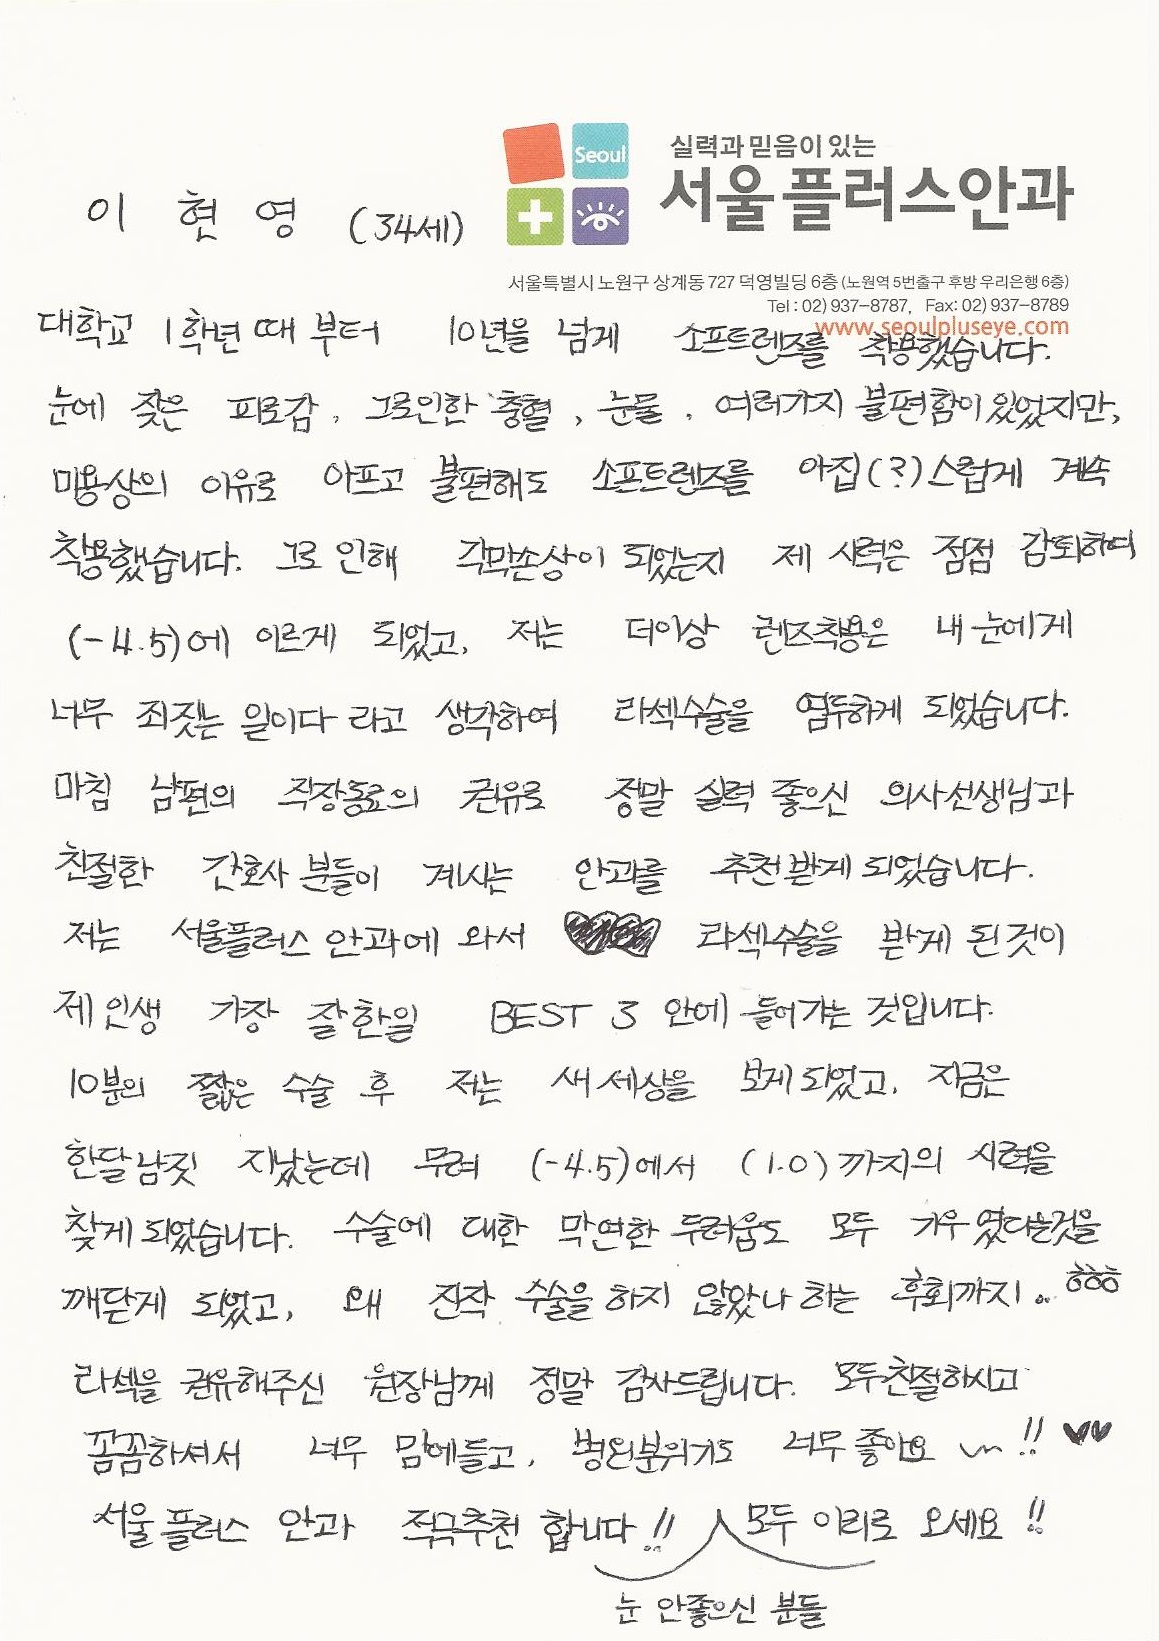 Seoul
실력과 믿음이 있는
서울플러스안과
이 현 영 (34세)
서울특별시 노원구 상계동 727 덕영빌딩 6층 (노원역 5번출구 후방 우리은행 6층)
Tel : 02) 937-8787, Fax: 02) 937-8789
www.seoulpluseye.com
대학교 1학년 때 부터 10년을 넘게 소프트렌즈를 착용했습니다.
눈에 잦은 피로감, 그로인한 충혈, 눈물, 여러가지 불편함이 있었지만,
미용상의 이유로 아프고 불편해도 소프트렌즈를 아집(?)스럽게 계속
착용했습니다. 그로 인해 각막손상이 되었는지 제 시력은 점점 감퇴하여
(-4.5)에 이르게 되었고, 저는 더이상 렌즈착용은 내 눈에게
너무 죄짓는 일이다 라고 생각하여 라섹수술을 염두하게 되었습니다.
마침 남편의 직장동료의 권유로 정말 실력 좋으신 의사선생님과
친절한 간호사 분들이 계시는 안과를 추천받게 되었습니다.
저는 서울플러스 안과에 와서 라섹수술을 받게 된 것이
제 인생 가장 잘한일 BEST 3 안에 들어가는 것입니다.
10분의 짧은 수술 후 저는 새 세상을 보게 되었고, 지금은
한달 남짓 지났는데 무려 (-4.5)에서 (1.0)까지의 시력을
찾게 되었습니다. 수술에 대한 막연한 두려움도 모두 기우 였다는것을
깨닫게 되었고, 왜 진작 수술을 하지 않았나 하는 후회까지.. ㅎㅎㅎ
라섹을 권유해주신 원장님께 정말 감사드립니다. 모두친절하시고
꼼꼼하셔서 너무 맘에들고, 병원분위기도 너무 좋아요 !! ♥♥
서울 플러스 안과 적극추천 합니다!! 모두 이리로 오세요!!
눈 안좋으신 분들